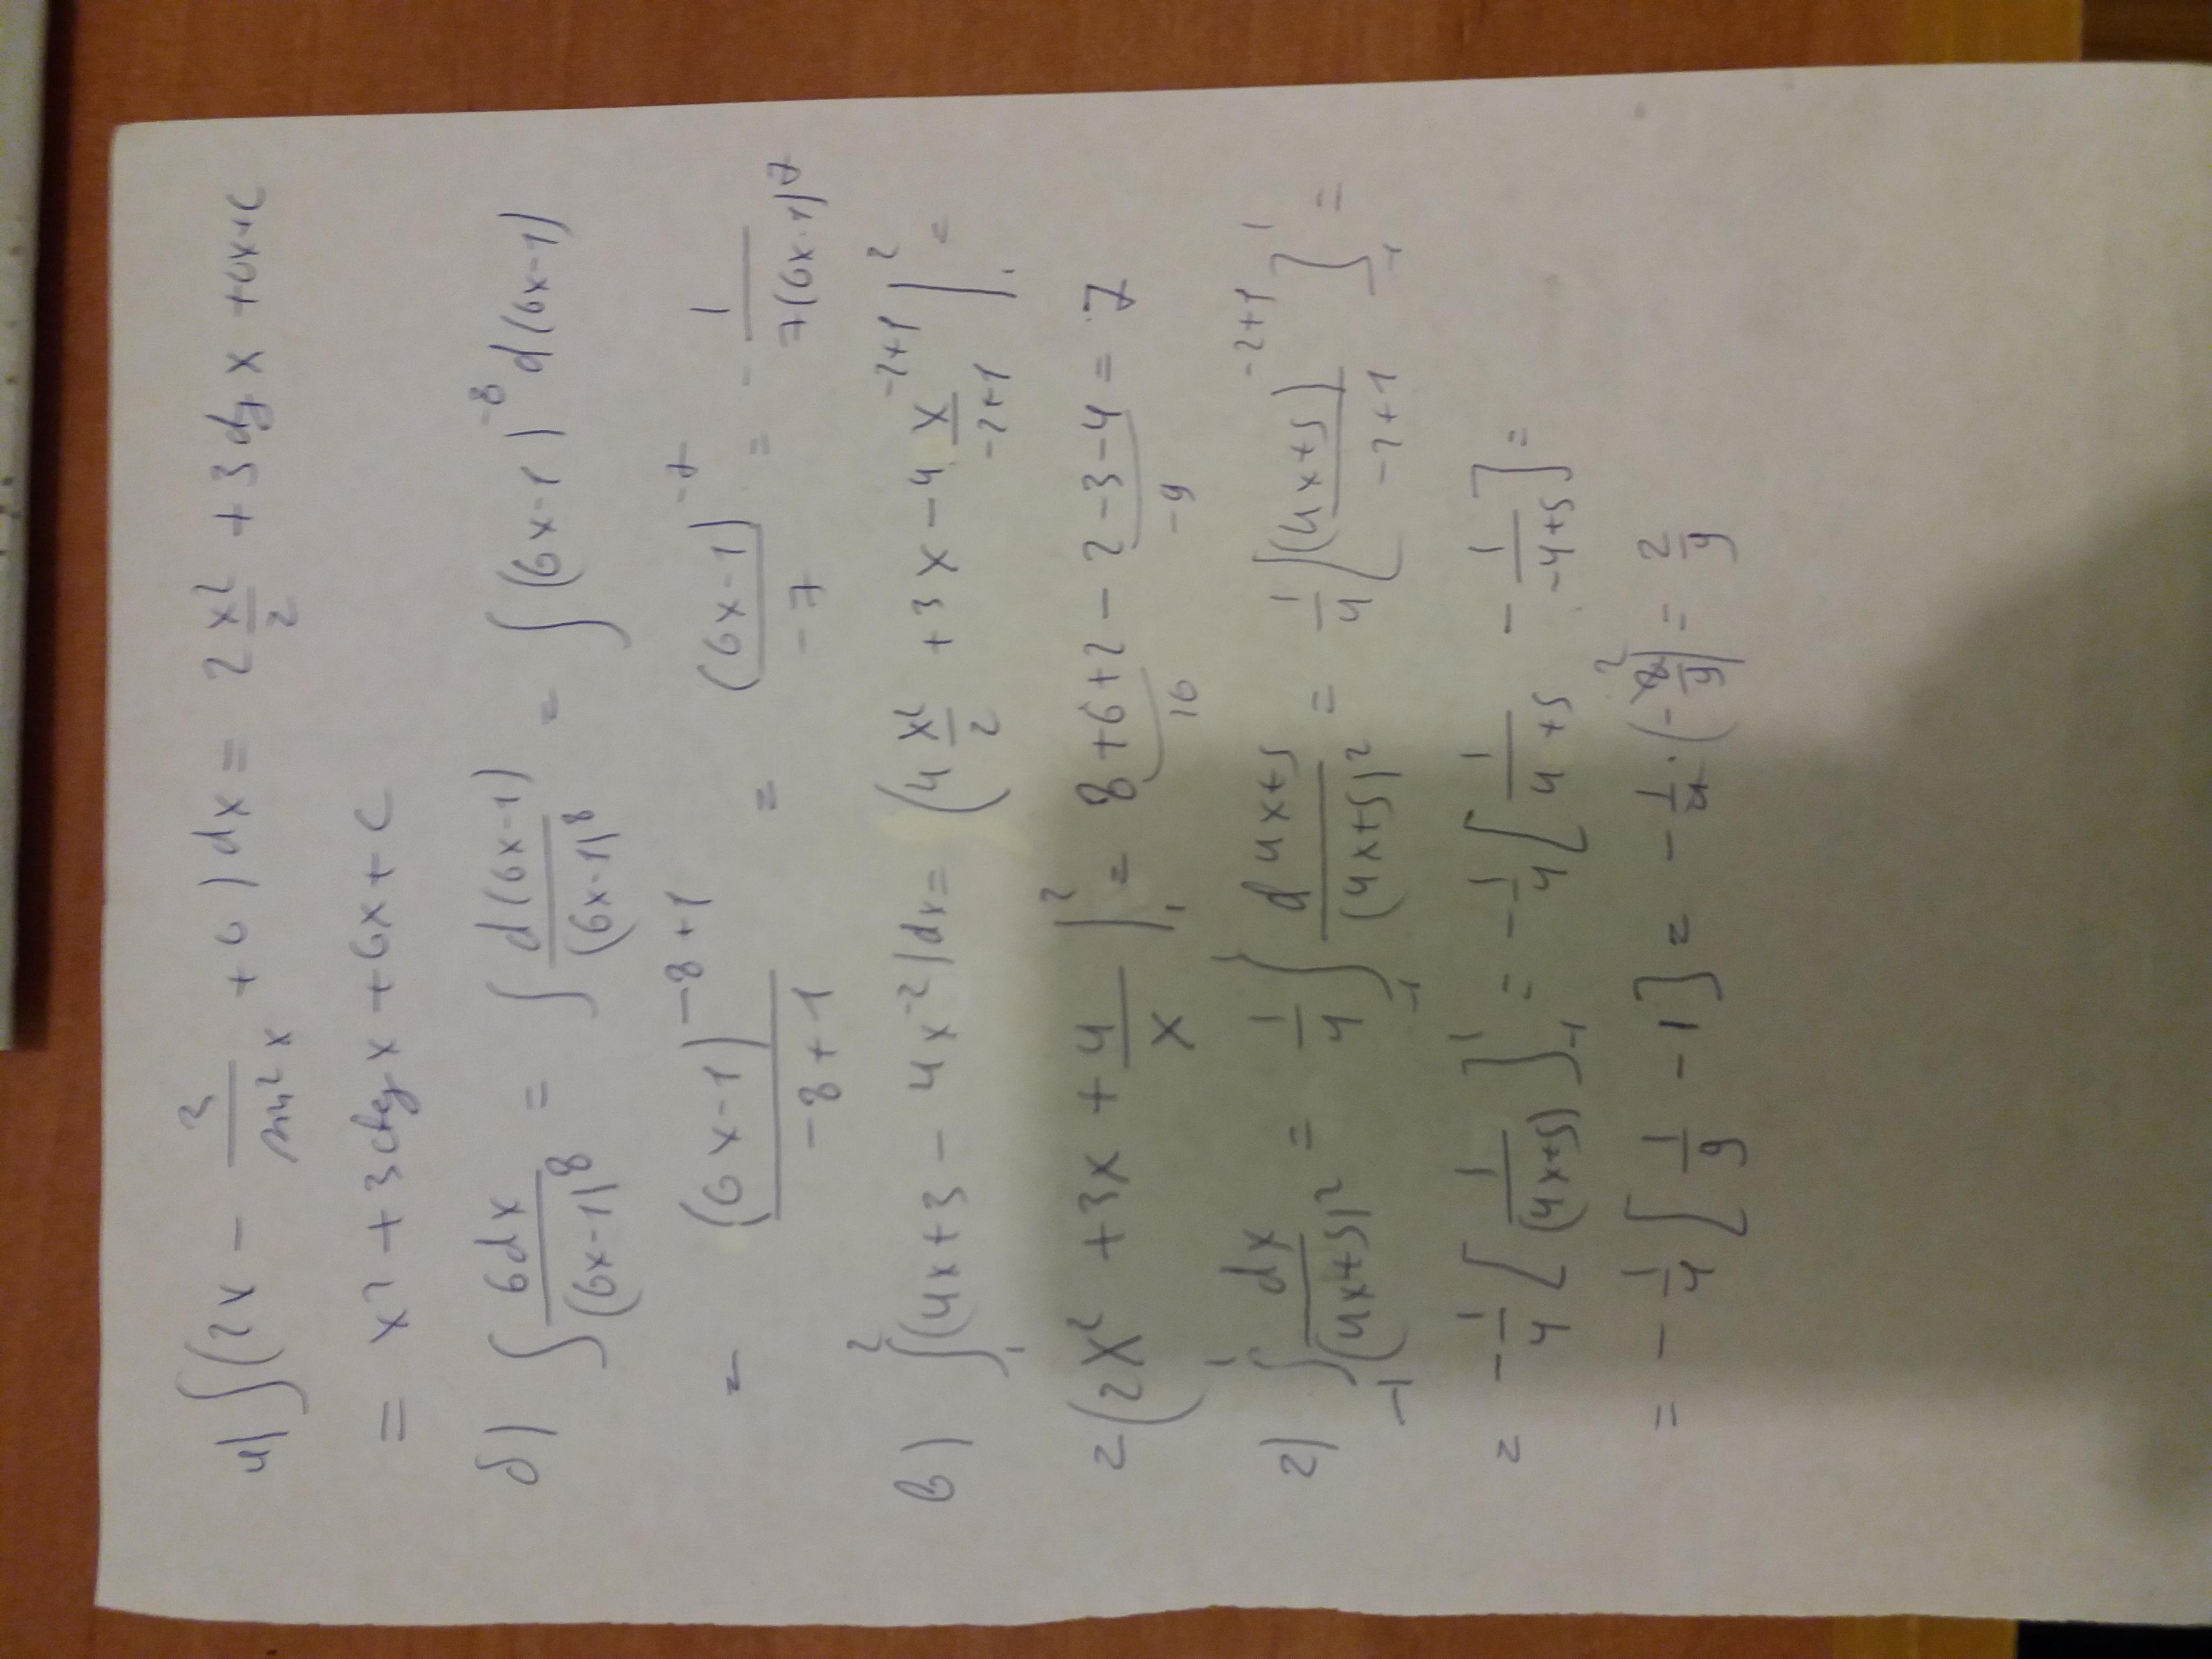 а) ∫(2x − 3/sin²x + 6) dx = 2 x²/2 + 3 ctg x + 6x + c
= x² + 3 ctg x + 6x + c
б) ∫ 6dx/(6x−1)⁸ = ∫ d(6x−1)/(6x−1)⁸ = ∫ (6x−1)⁻⁸ d(6x−1)
= (6x−1)⁻⁸⁺¹/(−8+1) = (6x−1)⁻⁷/(−7) = − 1/(7(6x−1)⁷)
в) ∫₁² (4x+3 − 4x⁻²)dx = (4 x²/2 + 3x − 4 x⁻²⁺¹/(−2+1) |₁² =
= (2x² + 3x + 4/x |₁² = 8+6+2 − 2−3−4 = 7
16 −9
г) ∫₋₁¹ dx/(4x+5)² = 1/4 ∫₋₁¹ d 4x+5/(4x+5)² = 1/4 [(4x+5)⁻²⁺¹/(−2+1)]₋₁¹ =
= − 1/4 [1/(4x+5)]₋₁¹ = − 1/4 [1/4+5 − 1/−4+5] =
= − 1/4 [1/9 − 1] = − 1/4 · (− 8/9) = 2/9